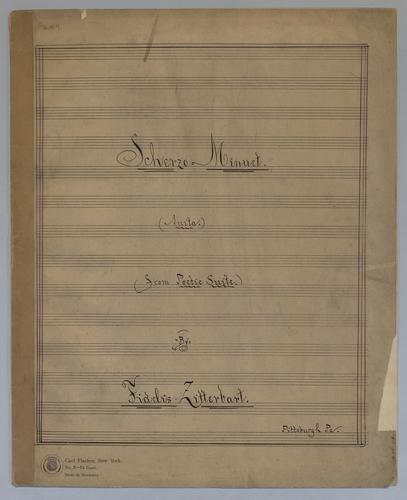 Scherzo-Minuet.
(Anita.)
(From Poetic Suite.)
-By-
Fidelis-Zitterbart.
Pittsburgh Pa.
Carl Fischer, New York.